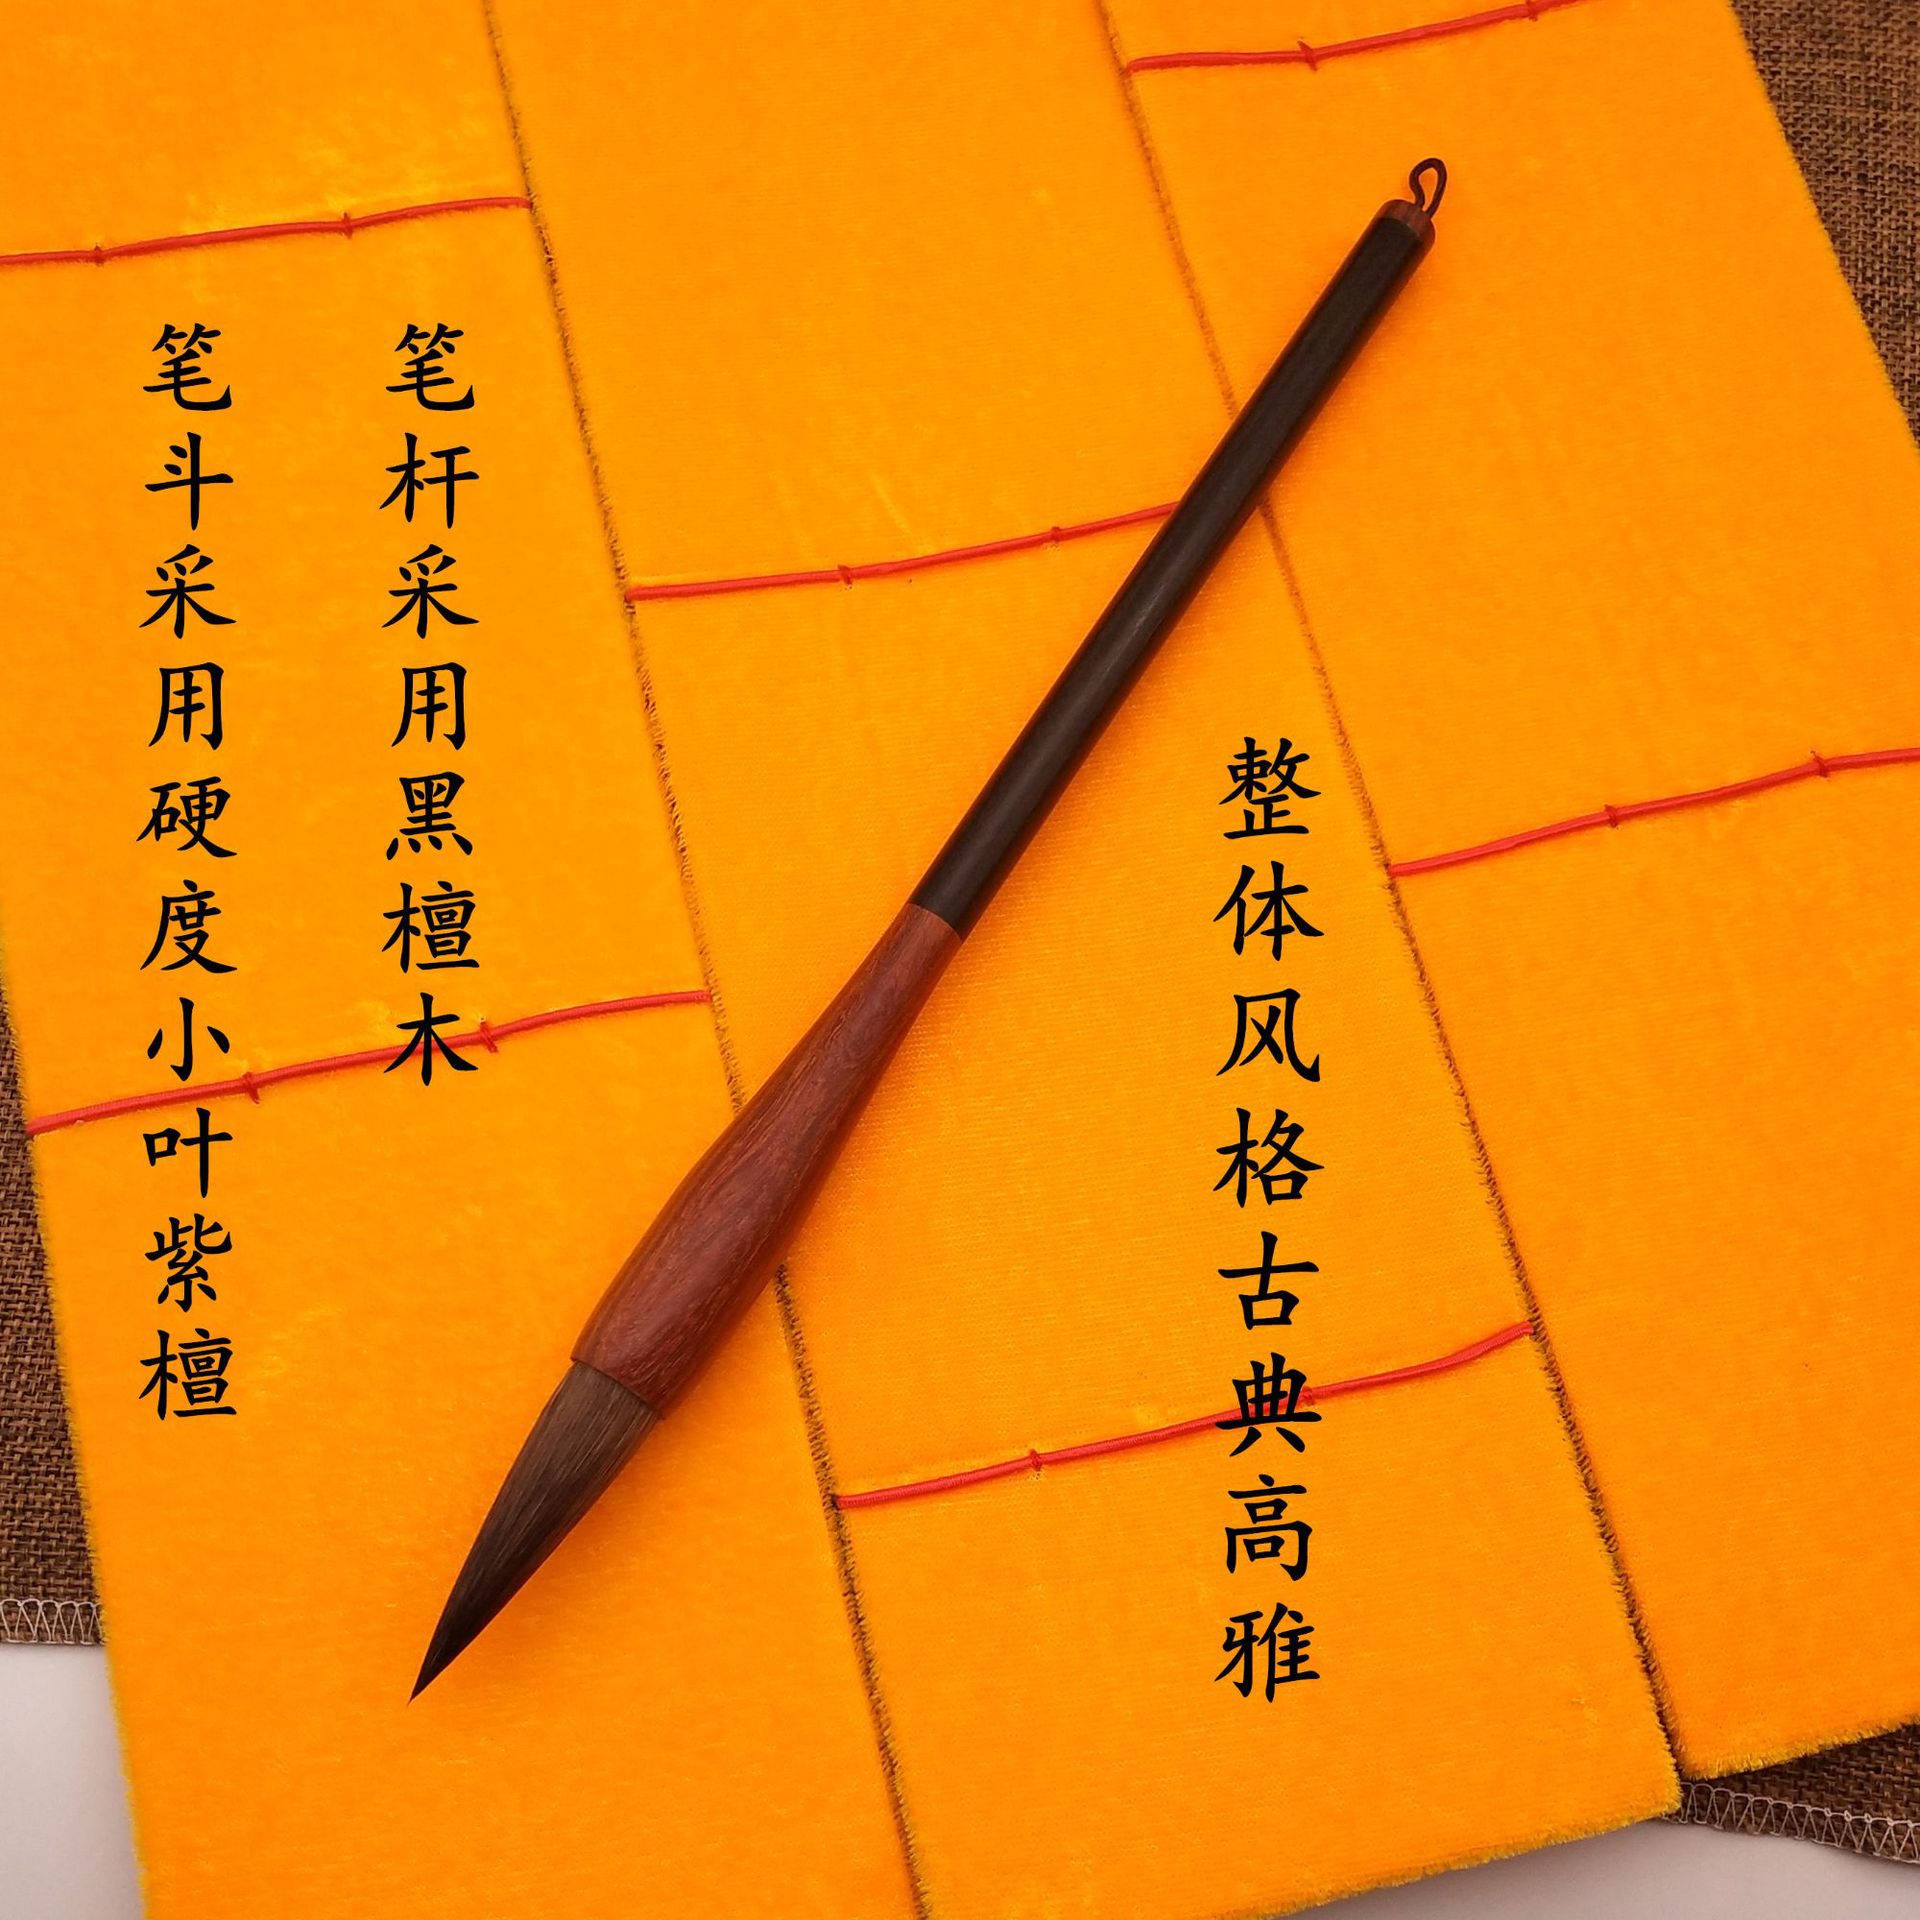 笔杆采用黑檀木
笔斗采用硬度小叶紫檀
整体风格古典高雅